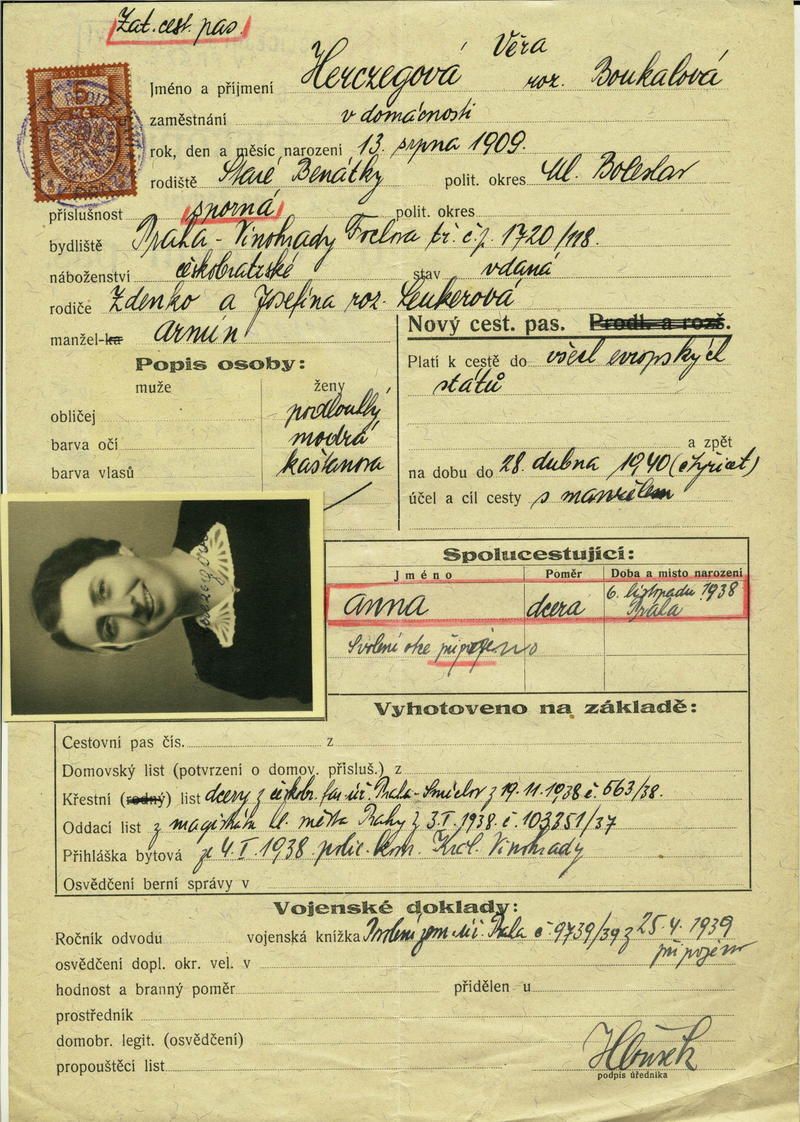 Zat. cest. pas.
Věra
Jméno a příjmení Herczegová roz. Boukalová
zaměstnání v domácnosti
rok, den a měsíc narození 13. srpna 1909.
rodiště Staré Benátky polit. okres Ml. Boleslav
příslušnost sporná polit. okres
bydliště Praha - Vinohrady Fochova tř. č.p. 1720/118.
náboženství českobratrské stav vdaná
rodiče Zdenko a Josefína roz. Leukerová
manžel-ka Armin
Nový cest. pas. Prodl. a rozš.
Popis osoby:
muže ženy
obličej podlouhlý
barva očí modrá
barva vlasů kaštanová
Platí k cestě do všech evropských
států
a zpět
na dobu do 28. dubna 1940 (čtyřicet)
účel a cíl cesty s manželem
Spolucestující:
Jméno Poměr Doba a místo narození
Anna dcera 6. listopadu 1938
Praha
Svolení otce připojeno
Vyhotoveno na základě:
Cestovní pas čís. z
Domovský list (potvrzení o domov. přísluš.) z
Křestní (rodný) list dcery z čsškobr. far. úř. Praha-Smíchov z 19. 11. 1938 č. 563/38.
Oddací list z magistrátu hl. města Prahy z 3. I. 1938. č. 103351/37
Přihláška bytová ze 4. I. 1938 polic. kom. Král. Vinohrady
Osvědčení berní správy v
Vojenské doklady:
Ročník odvodu vojenská knížka Svolení zem. úř. Praha č 9739/39 z 25. 4. 1939
připojeno
osvědčení dopl. okr. vel. v
hodnost a branný poměr přidělen u
prostředník
domobr. legit. (osvědčení)
propouštěcí list
Hloušek
podpis úředníka